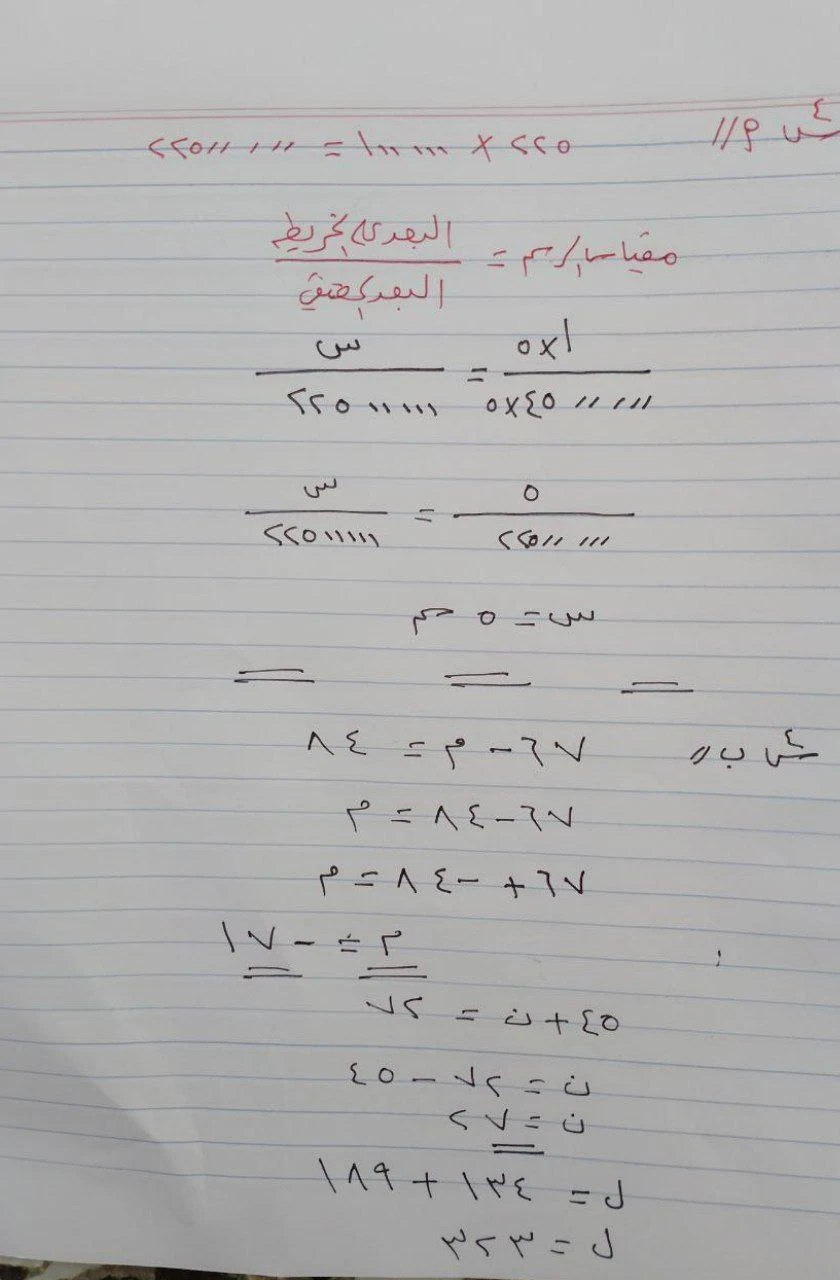 س٤ أ// ٢٢٥ × ١٠٠٠٠٠ = ٢٢٥٠٠٠٠٠
مقياس الرسم = البعد على الخريطة
البعد الحقيقي
١×٥ = س
٤٥٠٠٠٠٠×٥ ٢٢٥٠٠٠٠٠
٥ = س
٢٢٥٠٠٠٠٠ ٢٢٥٠٠٠٠٠
س = ٥ سم
س٤ ب// ٦٧ - م = ٨٤
٦٧ - ٨٤ = م
٦٧ + -٨٤ = م
م = -١٧
٤٥ + ن = ٧٢
ن = ٧٢ - ٤٥
ن = ٢٧
ل = ١٣٤ + ١٨٩
ل = ٣٢٣